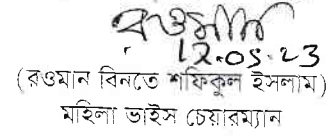 রওমান
12.05.23
(রওমান বিনতে শফিকুল ইসলাম)
মহিলা ভাইস চেয়ারম্যান